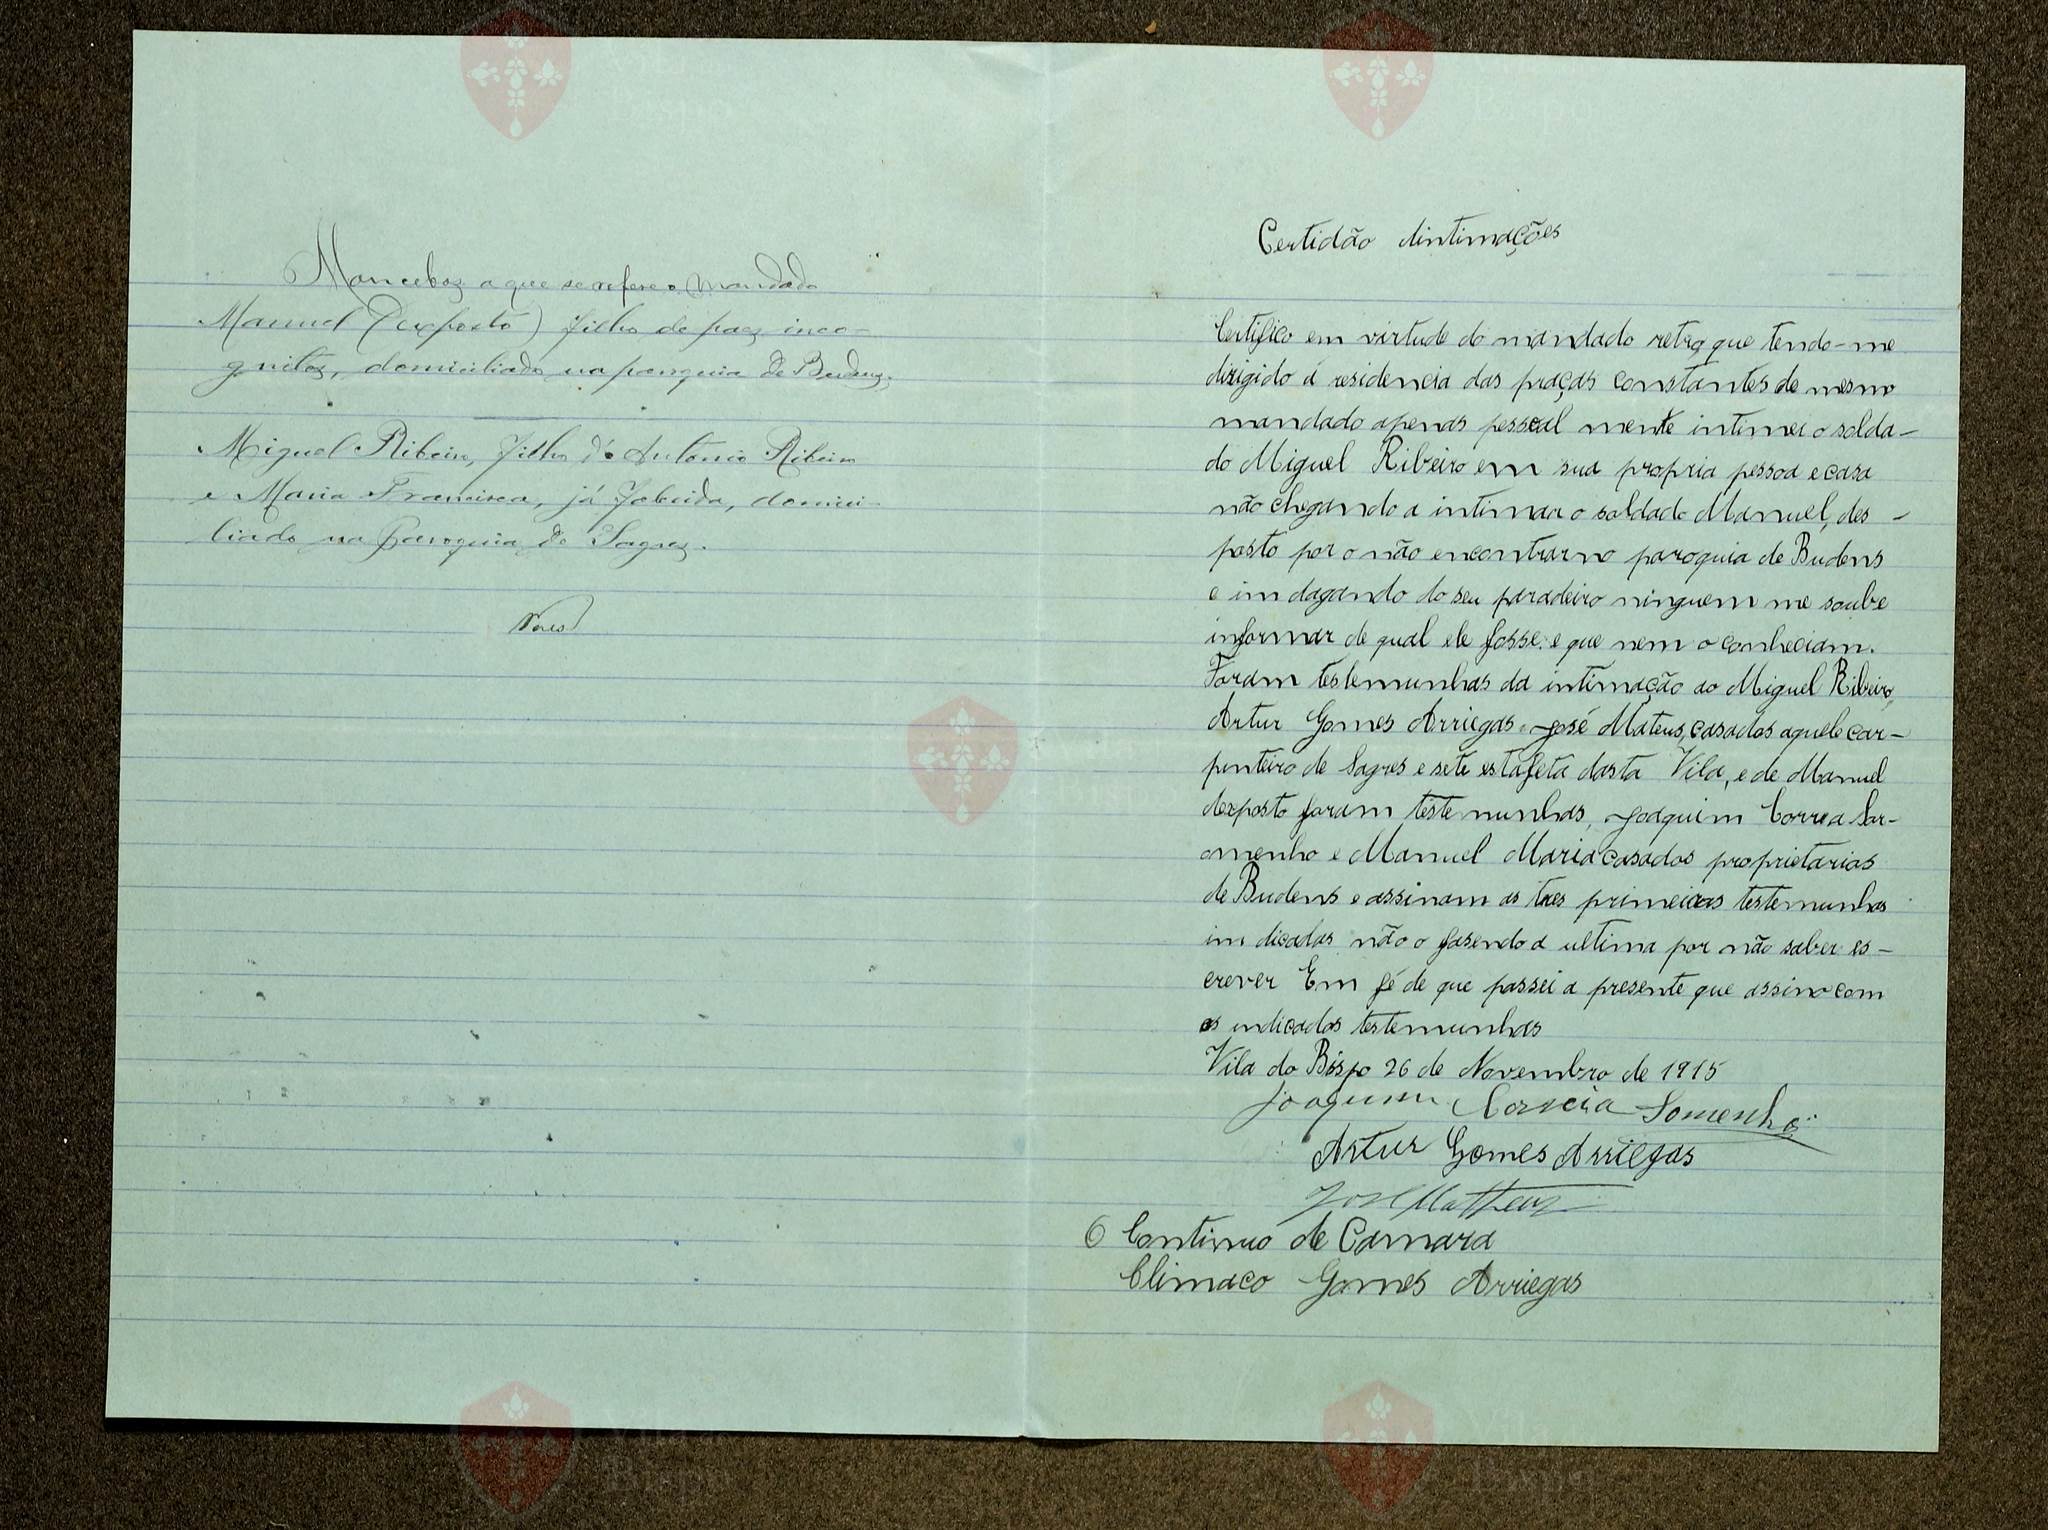 Mancebos a que se refere o mandado
Manuel (exposto) filho de paes inco-
gnitos, domiciliado na paroquia de Budens.
Miguel Ribeiro, filho d'Antonio Ribeiro
e Maria Francisca, já falecida, domici-
liado na Paroquia de Sagres.
Certidão dintimações
Certifico em virtude do mandado retro que tendo-me
dirigido á residencia das praças constantes de mesmo
mandado apenas pessoal mente intimei o solda-
do Miguel Ribeiro em sua propria pessoa e casa
não chegando a intimar o soldado Manuel, des-
posto por o não encontrar no paroquia de Budens
e im dagando do seu paradeiro ninguem me soube
informar de qual ele fosse e que nem o conheciam.
Foram testemunhas da intimação ao Miguel Ribeiro,
Artur Gomes Arriegas e José Mateus, casados aquele car-
pinteiro de Sagres e sete estafeta dasta Vila, e de Manuel
dexposto foram teste munhas, Joaquim Correa Sar-
omenho e Manuel Maria casados proprietarios
de Budens e assinam as tres primeiras testemunhas
im dicadas não o fasendo a ultima por não saber es-
crever Em fé de que passei a presente que assino com
as indicadas testemunhas
Vila do Bispo 26 de Novembro de 1915
Joaquim Correia Somenho
Artur Gomes Arriegas
José Matheus
O Continuo de Camara
Climaco Gomes Arriegas
Vila
Bispo